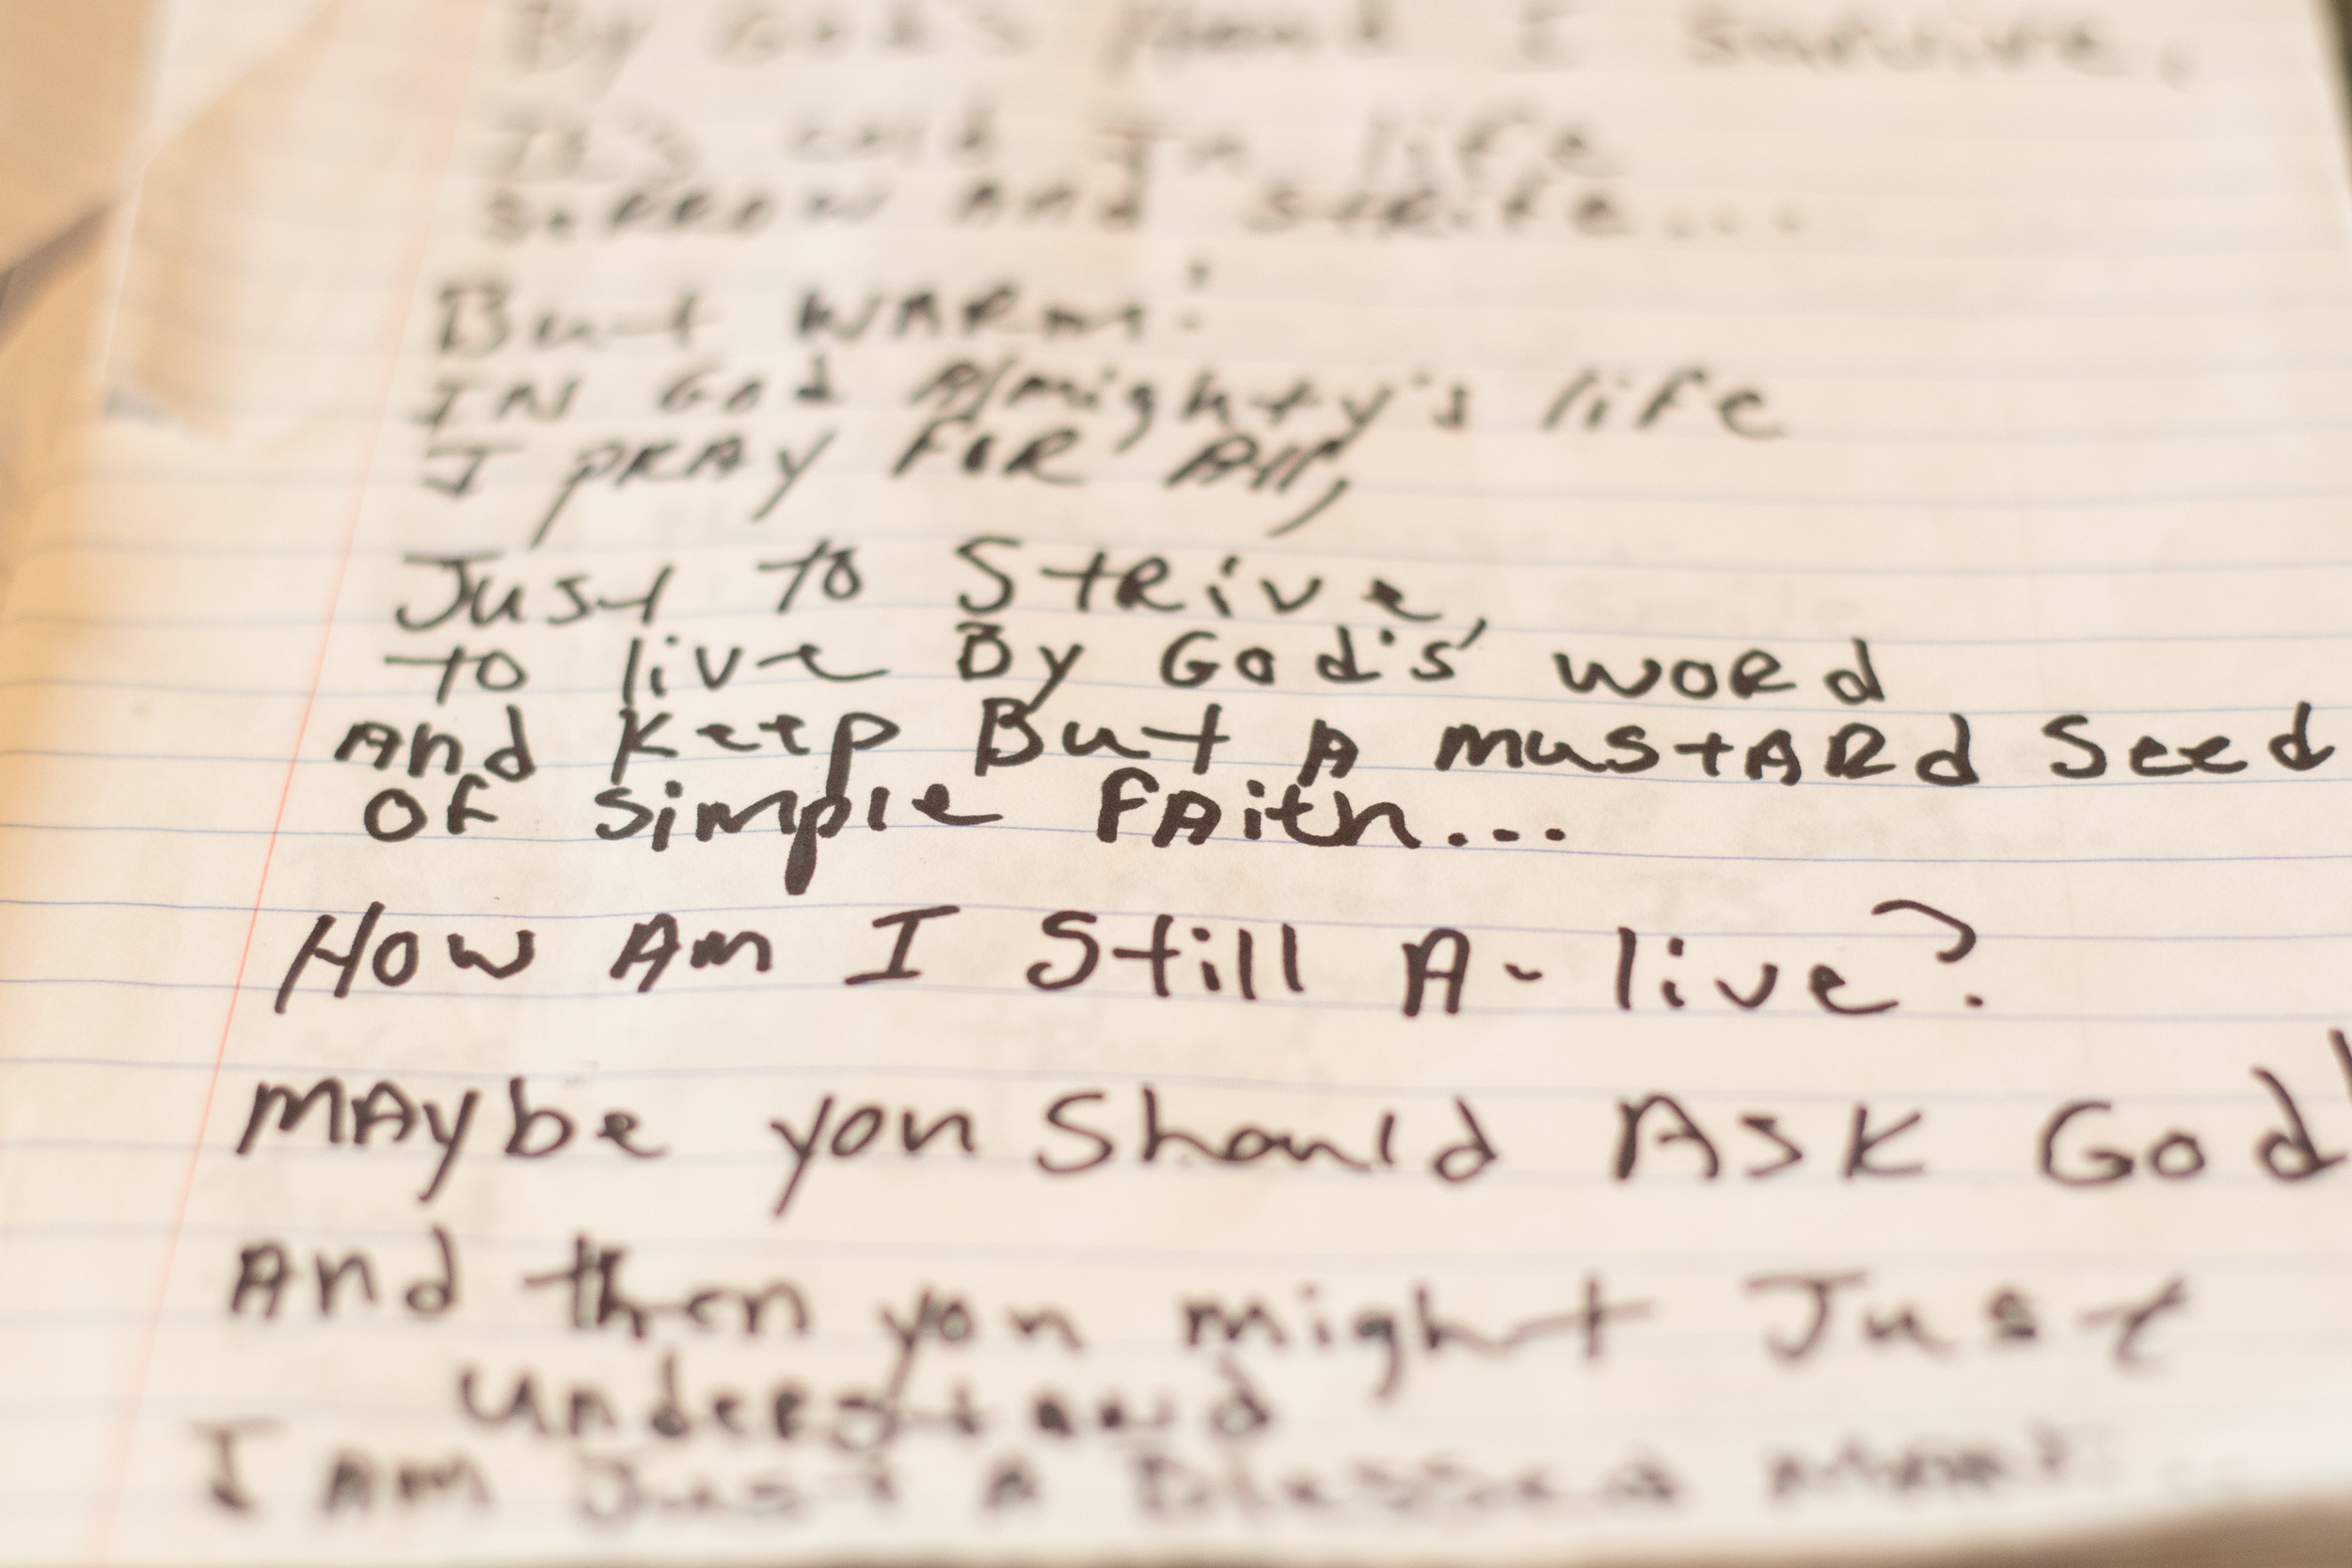 By God's Hand I survive,
It's cold In life
sorrow And strife...
But WARm:
IN God Almighty's life
I pRAy FOR All,
Just to StRive,
to live By God's' woRd
And Keep But A mustARd Seed
Of Simple FAith...
How Am I Still A-live?
MAybe you Should Ask God!
And then you might Just
understand
I Am Just A Blessed MAn!